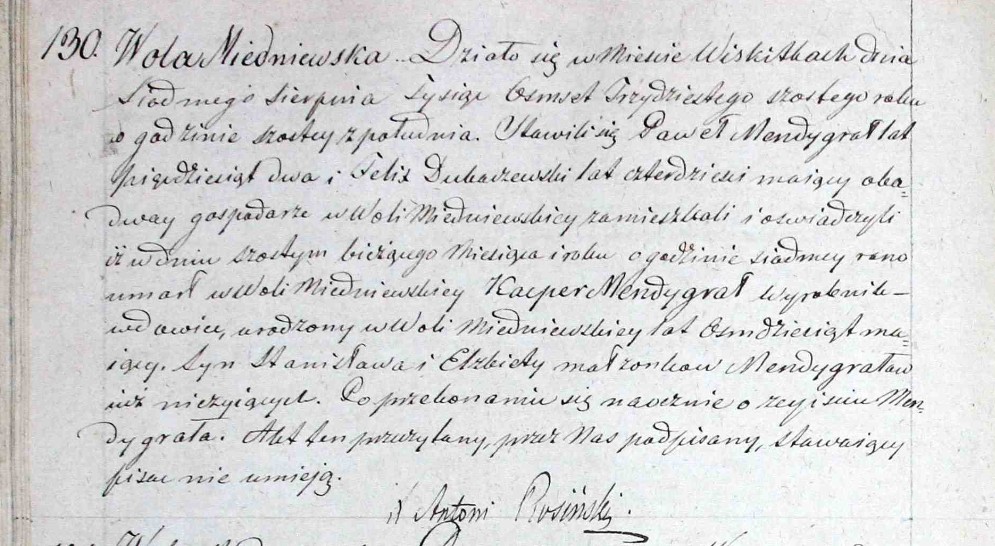 130. Wola Miedniewska. Działo się w Mieście Wiskitkach dnia
Siódmego Sierpnia Tysiąc Osmset Trzydziestego szostego roku
o godzinie szostey z południa. Stawili się Paweł Mendygrał lat
pięćdziesiąt dwa i Felix Dubaczewski lat czterdzieści maiący oba=
dway gospodarze w Woli Miedniewskiey zamieszkali i oświadczyli
iż w dniu szostym bieżącego Miesiąca i roku o godzinie siódmey rano
umarł w Woli Miedniewskiey Kacper Mendygrał Wyrobnik –
wdowiec, urodzony w Woli Miedniewskiey lat Osmdziesiąt ma=
iący. Syn Stanisława i Elżbiety małżonków Mendygrałów
już nieżyiących. Po przekonaniu się naocznie o zeyściu Men=
dygrała. Akt ten przeczytany, przez Nas podpisany, stawaiący
pisać nie umieją.
X Antoni Rosiński.